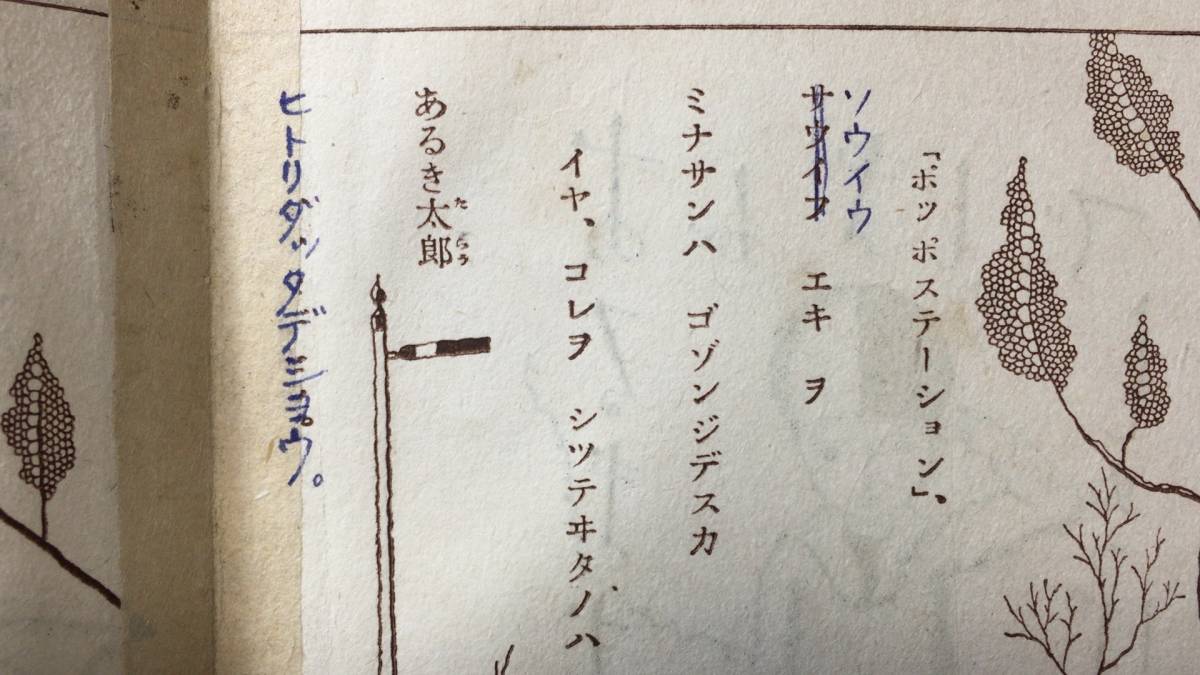 「ポツポステーション」、
ソウイウ
サウイフ エキ ヲ
ミナサンハ ゴゾンジデスカ
イヤ、 コレヲ シツテヰタノハ
たらう
あるき太郎
ヒトリダッタデショウ。